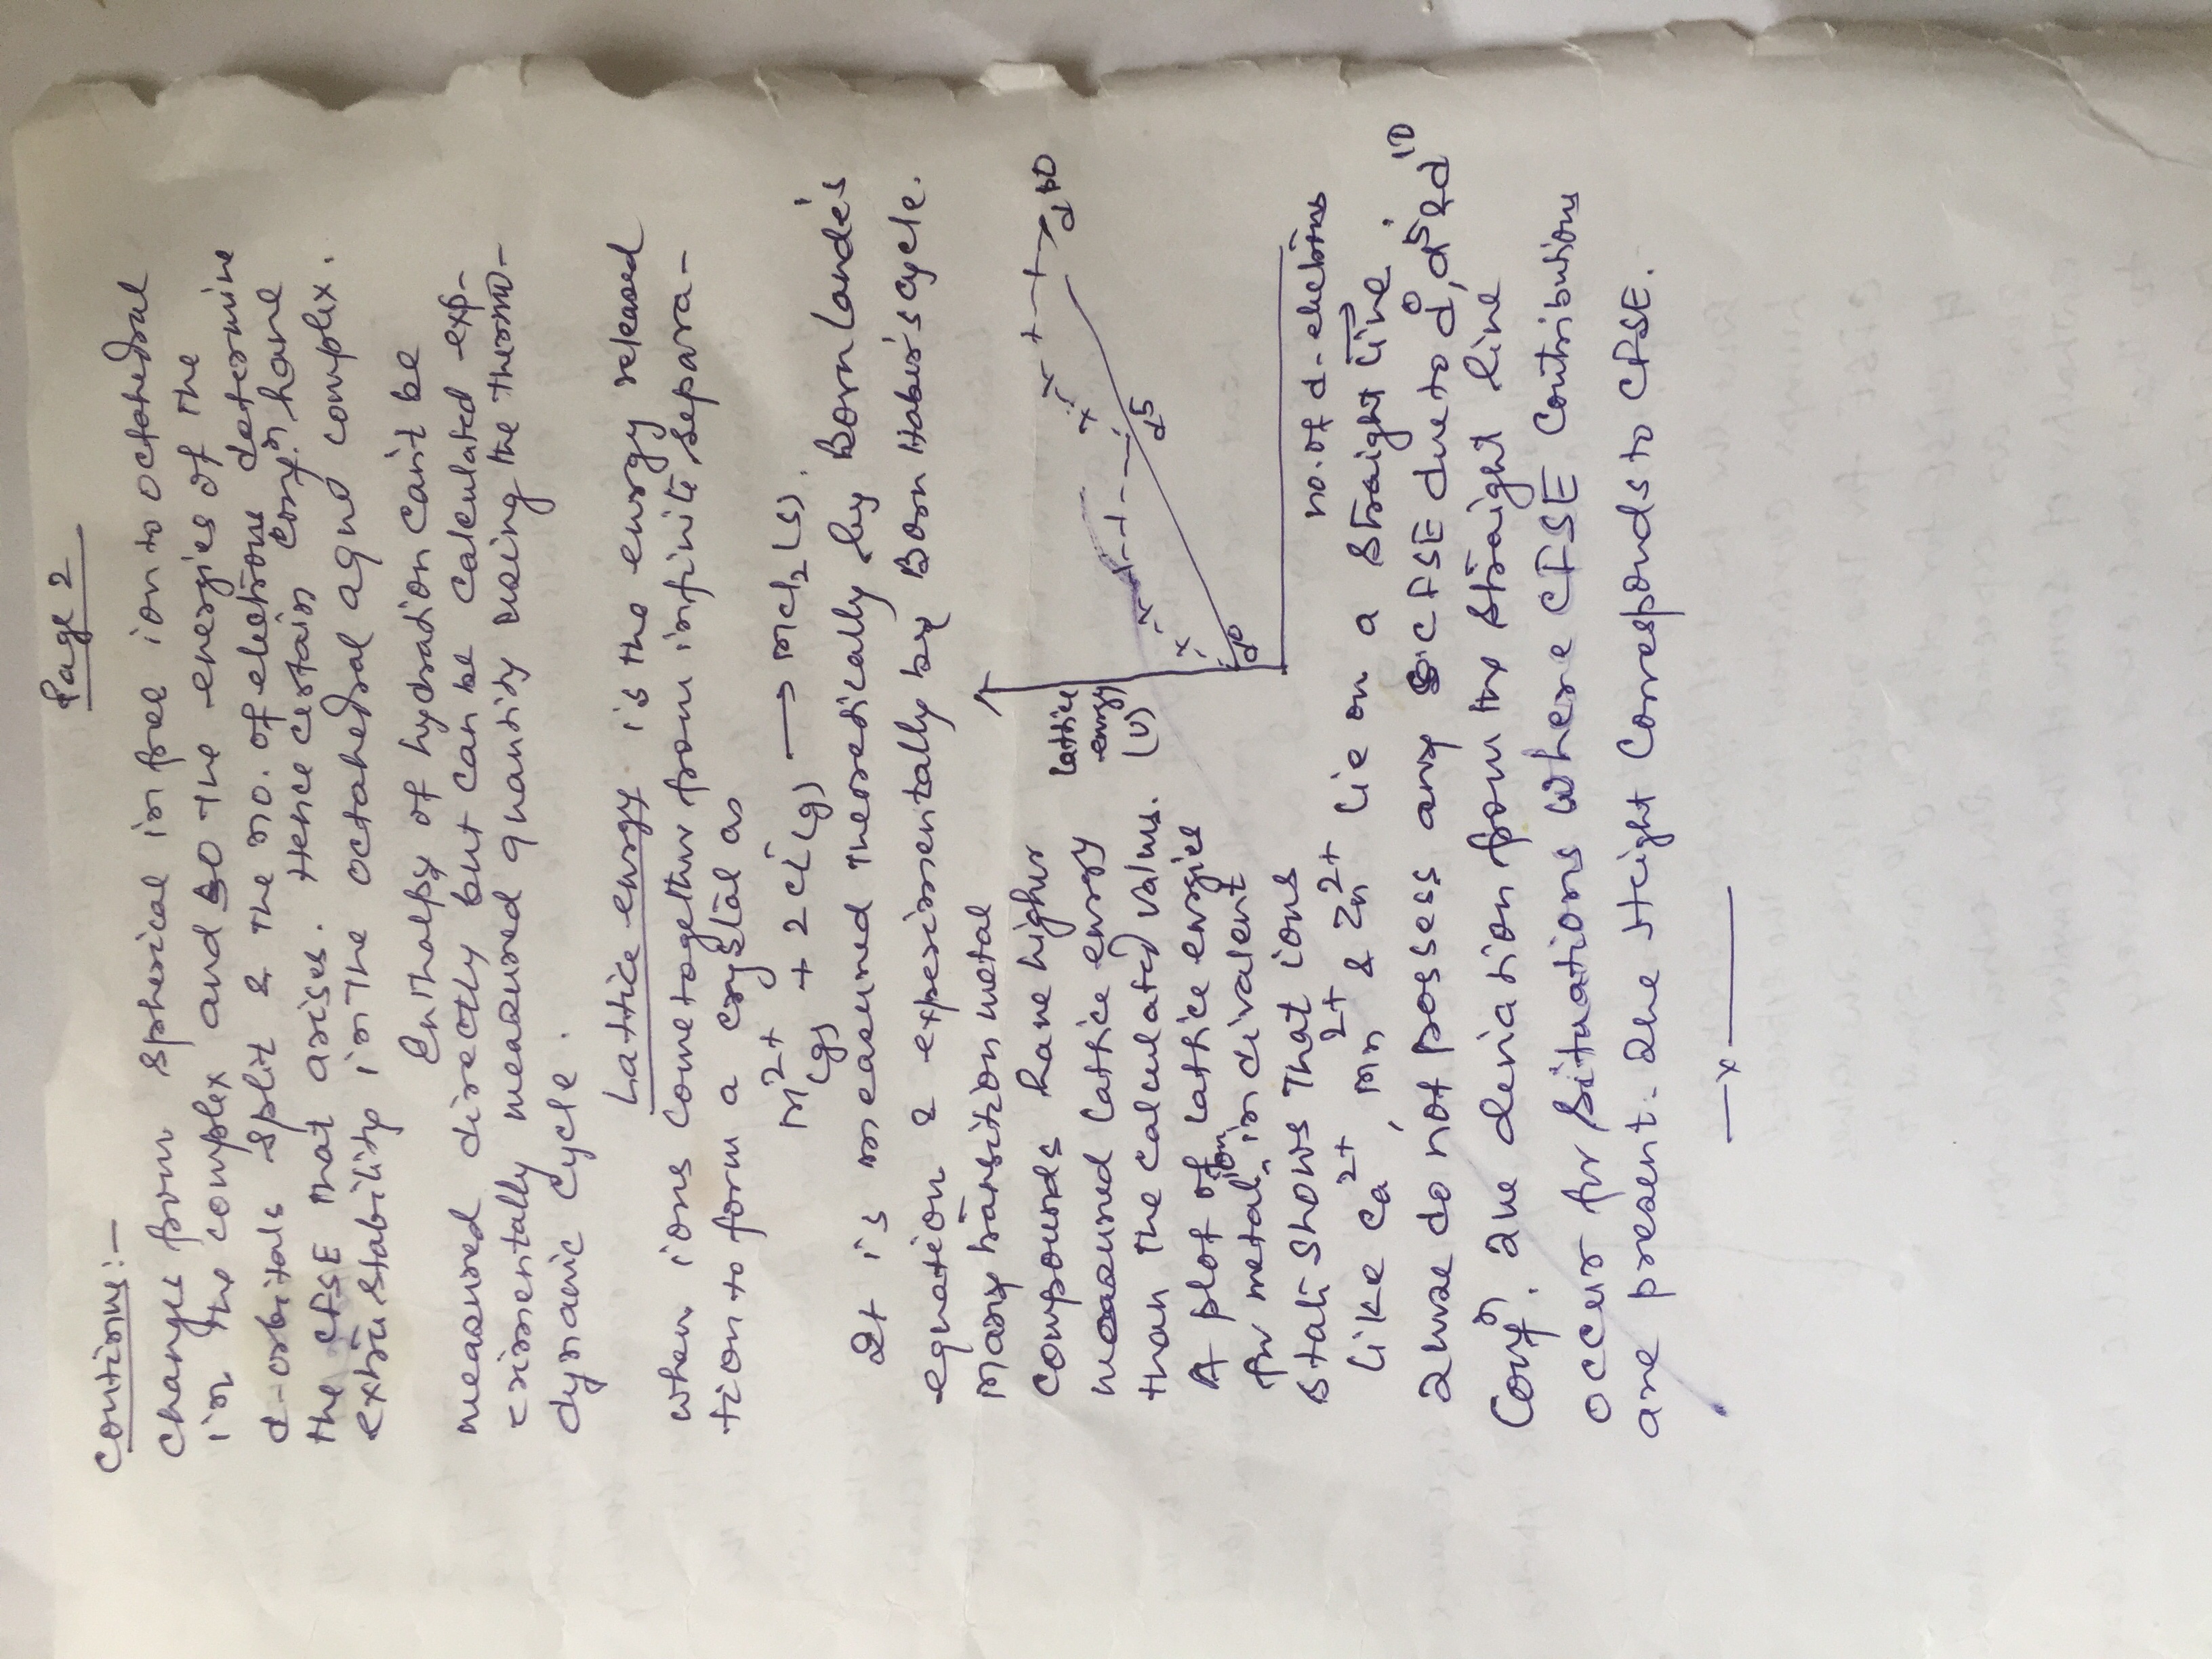 Page 2
Continue:-
changes from spherical in free ion to octahedral
in the complex and so the energies of the
d-orbitals split & the no. of electrons determine
the CFSE that arises. Hence certain confn have
extra stability in the octahedral aqua complex.
Enthalpy of hydration can't be
measured directly but can be calculated exp-
erimentally measured quantity using the thermo-
dynamic cycle.
Lattice energy is the energy released
when ions come together from infinite separa-
tion to form a crystal as
M²⁺(g) + 2Cl⁻(g) → MCl₂(s).
It is measured theoretically by Born Lande's
equation & experimentally by Born Haber's cycle.
Many transition metal
compounds have higher
measured lattice energy
than the calculated values.
A plot of lattice energies
for metal ion in divalent
state shows that ions
Lattice
energy
(U)
d⁰
d⁵
d¹⁰
no. of d-electrons
like Ca²⁺, Mn²⁺ & Zn²⁺ lie on a straight line.
These do not possess any CFSE due to d⁰, d⁵ & d¹⁰
confn. The deviation from the straight line
occur for situations where CFSE contributions
are present. The height corresponds to CFSE.
—x—